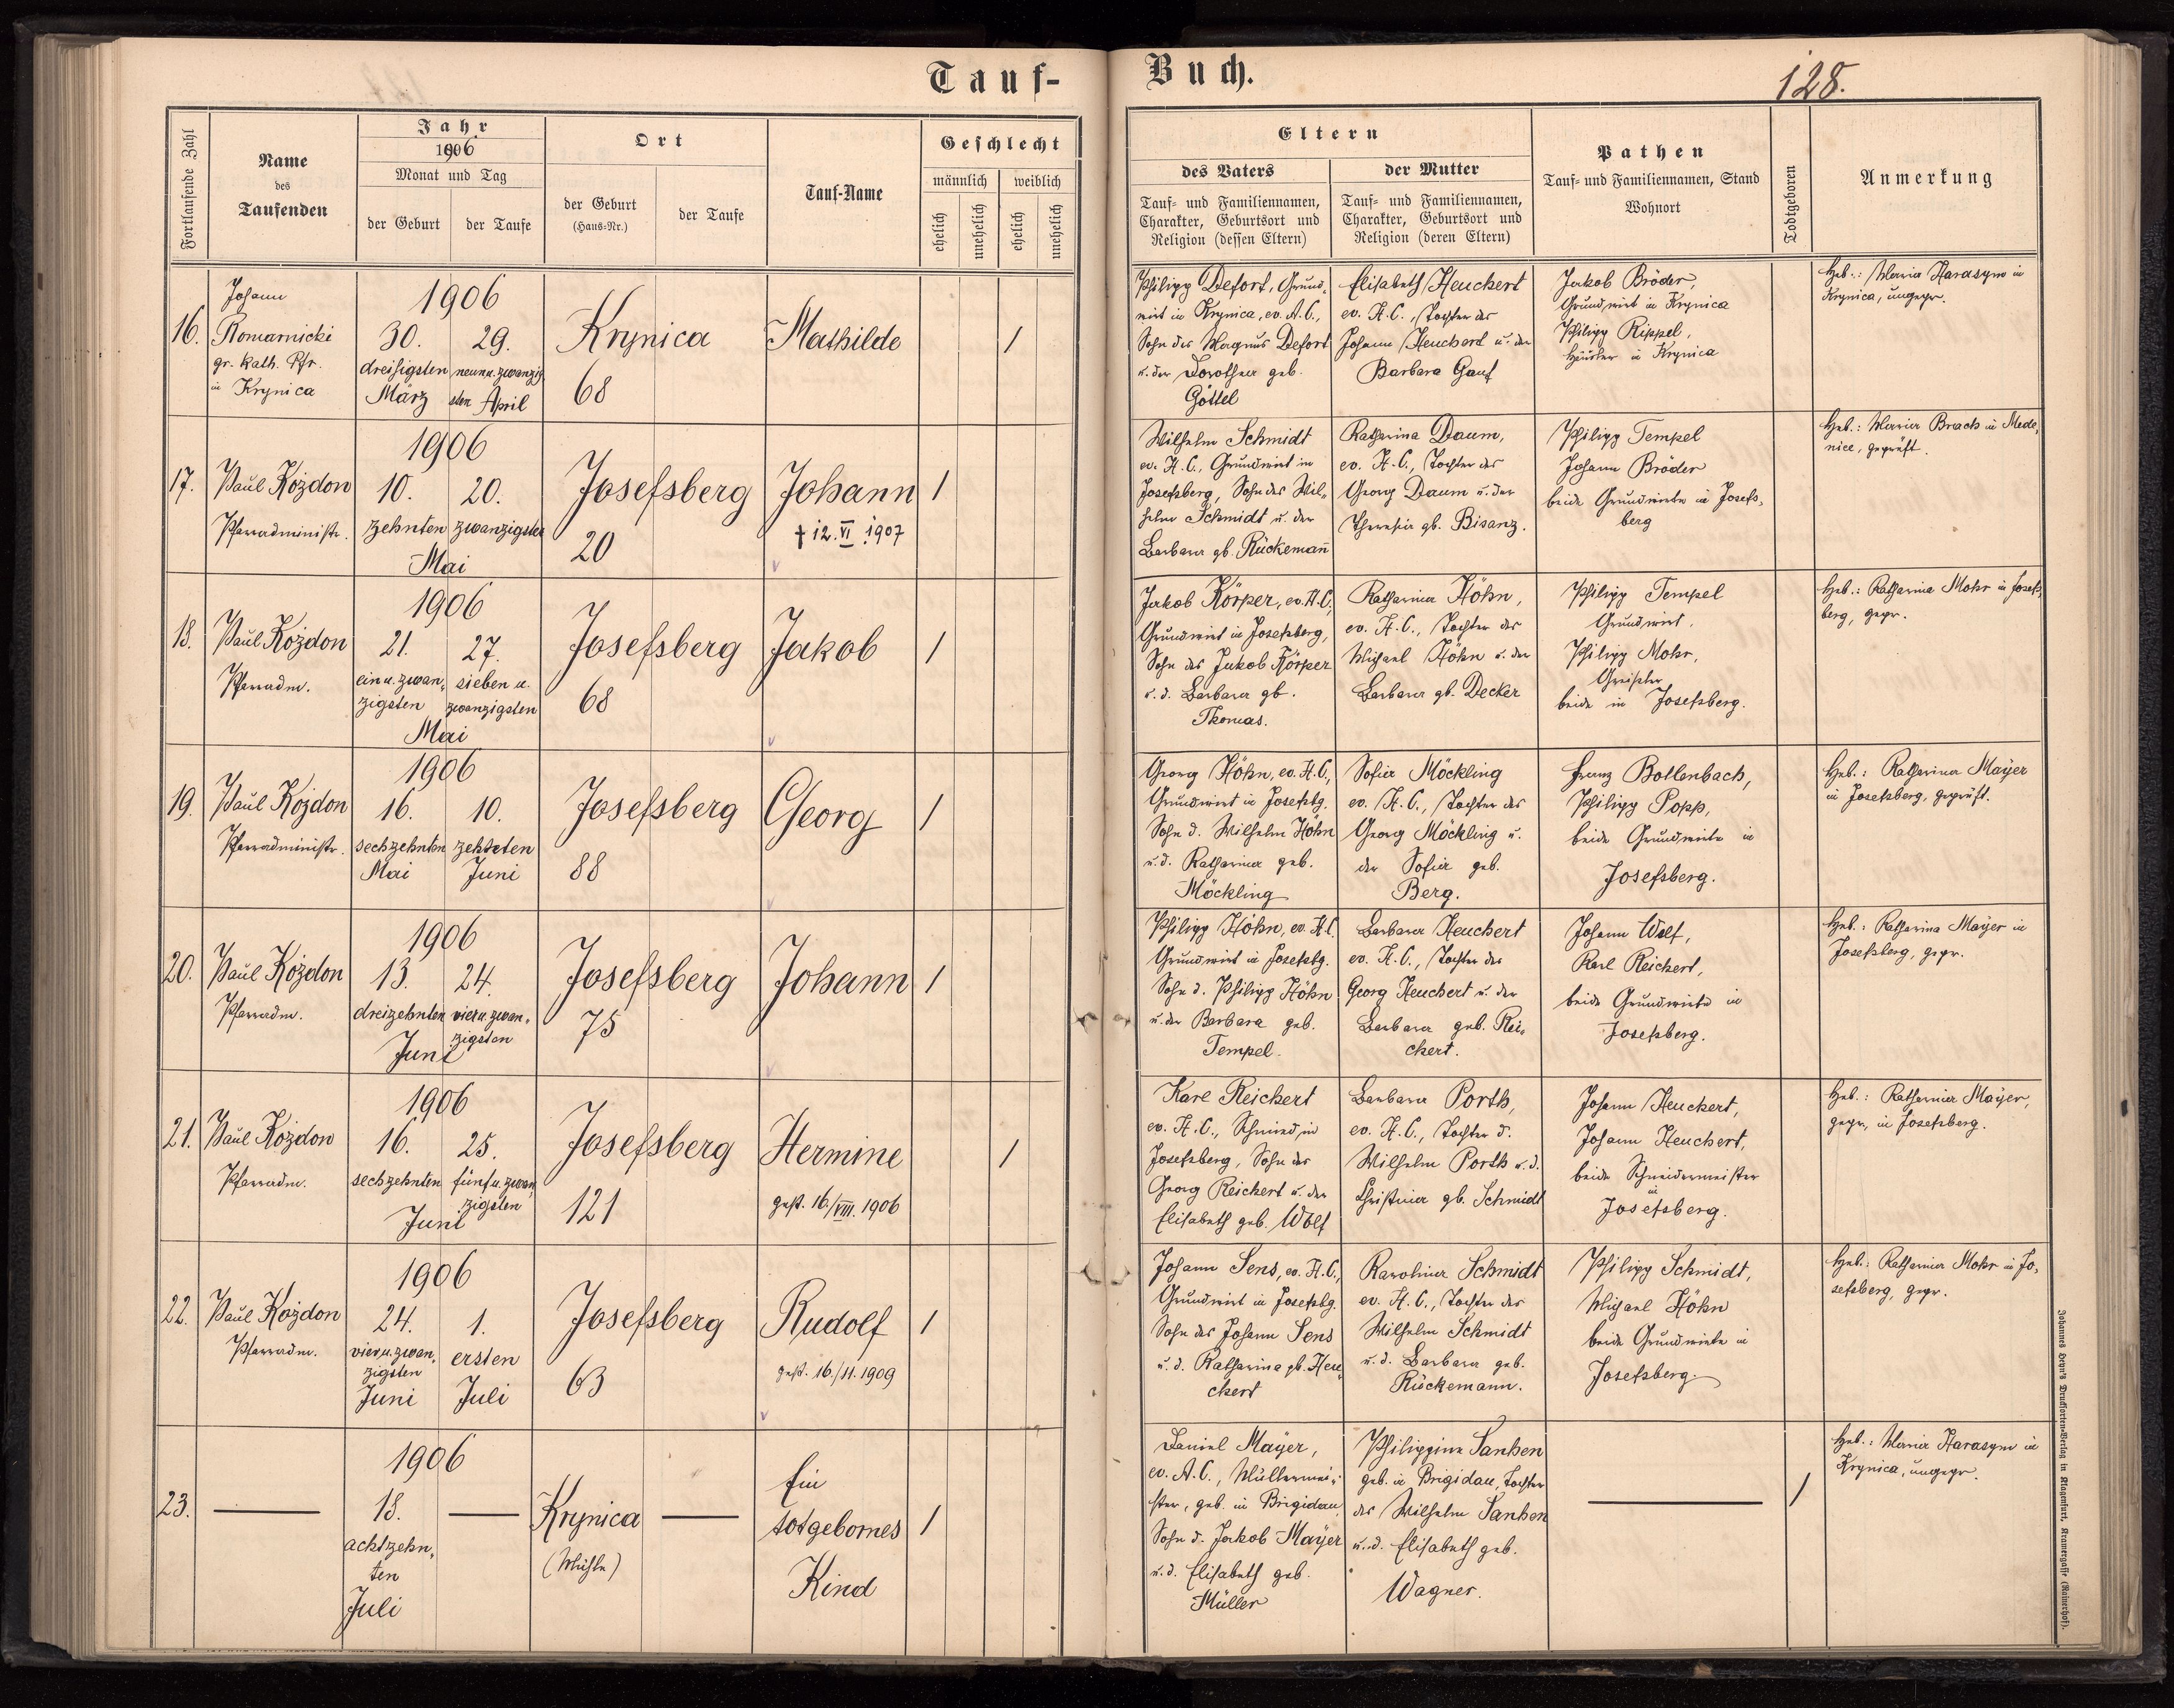 Tauf-
Buch.
128.
Fortlaufende Zahl
Name
des
Taufenden
Jahr
1906
Monat und Tag
der Geburt
der Taufe
Ort
der Geburt
(Haus-Nr.)
der Taufe
Tauf-Name
Geschlecht
männlich
weiblich
ehelich
unehelich
ehelich
unehelich
Eltern
des Vaters
Tauf- und Familiennamen,
Charakter, Geburtsort und
Religion (dessen Eltern)
der Mutter
Tauf- und Familiennamen,
Charakter, Geburtsort und
Religion (deren Eltern)
Pathen
Tauf- und Familiennamen, Stand
Wohnort
Todtgeboren
Anmerkung
16.
Johann
Romarnicki
gr. kath. Pfr.
in Krynica
1906
30.
dreißigsten
März
29.
neunu.zwanzig
sten April
Krynica
68
Mathilde
/
Philipp Defort, Grund-
wirt in Krynica, ev. A.C.,
Sohn des Magnus Defort
u. der Dorothea geb.
Göttel
Elisabeth Heuchert
ev. H.C., Tochter des
Johann Heuchert u. der
Barbara Gauf
Jakob Bröder,
Grundwirt in Krynica
Philipp Rippel,
Häusler in Krynica
Heb.: Maria Harasym in
Krynica, ungepr.
17.
Paul Kozdon
Pfarradministr.
1906
10.
zehnten
20.
zwanzigsten
Mai
Josefsberg
20
Johann
† 12. VI. 1907
/
Wilhelm Schmidt
ev. H.C., Grundwirt in
Josefsberg, Sohn des Wil-
helm Schmidt u. der
Barbara gb. Rückemañ
Katharina Daum,
ev. H.C., Tochter des
Georg Daum u. der
Theresia gb. Bisanz.
Philipp Tempel
Johann Bröder
beide Grundwirte in Josefs-
berg
Heb.: Maria Brach in Mede-
nice, geprüft.
18.
Paul Kozdon
Pfarradm.
1906
21.
ein u. zwan-
zigsten
27.
sieben u.
zwanzigsten
Mai
Josefsberg
68
Jakob
/
Jakob Körper, ev. H.C.,
Grundwirt in Josefsberg,
Sohn des Jakob Körper
u. d. Barbara gb.
Thomas.
Katharina Höhn,
ev. H.C., Tochter des
Michael Höhn u. der
Barbara gb. Decker
Philipp Tempel
Grundwirt,
Philipp Mohr,
Greißler
beide in Josefsberg.
Heb.: Katharina Mohr in Josefs-
berg, gepr.
19.
Paul Kozdon
Pfarradministr.
1906
16.
sechzehnten
Mai
10.
zehnten
Juni
Josefsberg
88
Georg
/
Georg Höhn, ev. H.C.,
Grundwirt in Josefsbg.
Sohn d. Wilhelm Höhn
u. d. Katharina geb.
Möckling
Sofia Möckling
ev. H.C., Tochter des
Georg Möckling u.
der Sofia geb.
Berg.
Franz Bollenbach,
Philipp Popp,
beide Grundwirte in
Josefsberg.
Heb.: Katharina Mayer
in Josefsberg, geprüft.
20.
Paul Kozdon
Pfarradm.
1906
13.
dreizehnten
24.
vieru.zwan-
zigsten
Juni
Josefsberg
75
Johann
/
Philipp Höhn, ev. H.C.
Grundwirt in Josefsbg.
Sohn d. Philipp Höhn
u. der Barbara geb.
Tempel.
Barbara Heuchert
ev. H.C., Tochter des
Georg Heuchert u. der
Barbara geb. Rei-
chert.
Johann Wolf,
Karl Reichert,
beide Grundwirte in
Josefsberg.
Heb.: Katharina Mayer in
Josefsberg, gepr.
21.
Paul Kozdon
Pfarradm.
1906
16.
sechzehnten
25.
fünfu.zwan-
zigsten
Juni
Josefsberg
121
Hermine
gest. 16./VIII. 1906
/
Karl Reichert
ev. H.C., Schmied in
Josefsberg, Sohn des
Georg Reichert u. der
Elisabeth geb. Wolf
Barbara Porth,
ev. H.C., Tochter d.
Wilhelm Porth u. d.
Christina gb. Schmidt
Johann Heuchert,
Johann Heuchert,
beide Schneidermeister
in
Josefsberg.
Heb.: Katharina Mayer,
gepr., in Josefsberg.
22.
Paul Kozdon
Pfarradm.
1906
24.
vieru.zwan-
zigsten
Juni
1.
ersten
Juli
Josefsberg
63
Rudolf
gest. 16./11. 1909
/
Johann Sens, ev. H.C.,
Grundwirt in Josefsbg.
Sohn des Johann Sens
u. d. Katharina gb. Heu-
chert
Karolina Schmidt
ev. H.C., Tochter des
Wilhelm Schmidt
u. d. Barbara geb.
Rückemann.
Philipp Schmidt,
Michael Höhn
beide Grundwirte in
Josefsberg.
Heb.: Katharina Mohr in Jo-
sefsberg, gepr.
23.
1906
18.
achtzehn-
ten
Juli
Krynica
(Mühle)
Ein
totgebornes
Kind
/
Daniel Mayer,
ev. A.C., Müllermei-
ster, geb. in Brigidau
Sohn d. Jakob Mayer
u. d. Elisabeth geb.
Müller
Philippine Sanhen
geb. in Brigidau, Tochter
des Wilhelm Sanhen
u. d. Elisabeth geb.
Wagner.
/
Heb.: Maria Harasym in
Krynica, ungepr.
Johannes Heyn's Drucksorten-Verlag in Klagenfurt, Kramergasse (Rainerhof).